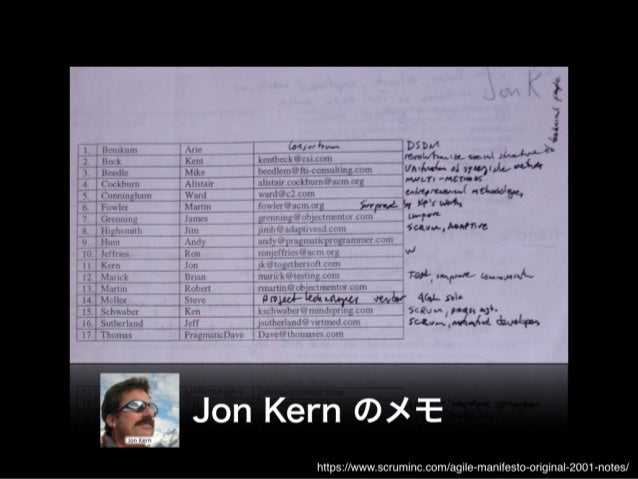 Jon K
1. Benikum Arie Consortium DSDM
2. Beck Kent kentbeck@csi.com revolutionize social structure
3. Beedle Mike beedlem@fti-consulting.com Unification of
4. Cockburn Alistair alistair.cockburn@acm.org MULTI-METHODS
5. Cunningham Ward ward@c2.com entrepreneurial methodologies
6. Fowler Martin fowler@acm.org Surprised by XP's works
7. Grenning James grenning@objectmentor.com improve
8. Highsmith Jim jimh@adaptivesd.com SCRUM, ADAPTIVE
9. Hunt Andy andy@pragmaticprogrammer.com
10. Jeffries Ron ronjeffries@acm.org
11. Kern Jon jk@togethersoft.com
12. Marick Brian marick@testing.com Test, improve
13. Martin Robert rmartin@objectmentor.com
14. Mellor Steve Project vendor
15. Schwaber Ken kschwaber@mindspring.com SCRUM,
16. Sutherland Jeff jsutherland@virtmed.com SCRUM, motivated developers
17. Thomas PragmaticDave Dave@thomases.com
Jon Kern
Jon Kern のメモ
https://www.scruminc.com/agile-manifesto-original-2001-notes/